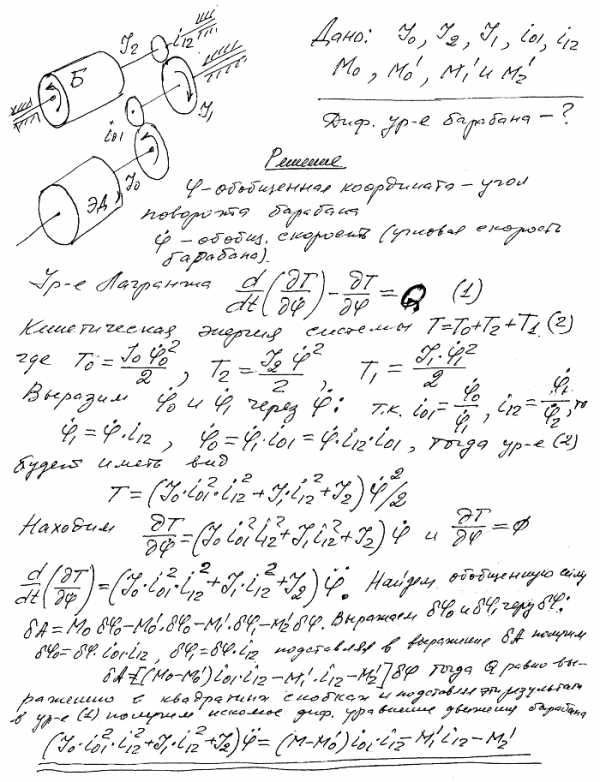 J₂ i₁₂
Б
J₁
i₀₁
ЭД J₀
Дано: J₀, J₂, J₁, i₀₁, i₁₂
M₀, M₀', M₁' и M₂'
Диф. ур-е барабана – ?
Решение
φ – обобщенная координата – угол
поворота барабана
φ̇ – обобщ. скорость (угловая скорость
барабана).
Ур-е Лагранжа d/dt(∂T/∂φ̇) – ∂T/∂φ = Q (1)
Кинетическая энергия системы T=T₀+T₂+T₁ (2)
где T₀ = J₀φ̇₀²/2, T₂ = J₂φ̇²/2, T₁ = J₁·φ̇₁²/2
Выразим φ̇₀ и φ̇₁ через φ̇: т.к. i₀₁ = φ̇₀/φ̇₁, i₁₂ = φ̇₁/φ̇₂, то
φ̇₁ = φ̇·i₁₂, φ̇₀ = φ̇₁·i₀₁ = φ̇·i₁₂·i₀₁, тогда ур-е (2)
будет иметь вид
T = (J₀·i₀₁²·i₁₂² + J₁·i₁₂² + J₂) φ̇²/2
Находим ∂T/∂φ̇ = (J₀i₀₁²i₁₂² + J₁i₁₂² + J₂) φ̇ и ∂T/∂φ = 0
d/dt(∂T/∂φ̇) = (J₀·i₀₁²·i₁₂² + J₁·i₁₂² + J₂) φ̈. Найдем обобщенную силу
δA = M₀δφ₀ – M₀'·δφ₀ – M₁'·δφ₁ – M₂'δφ. Выражаем δφ₀ и δφ₁ через δφ:
δφ₀ = δφ·i₀₁·i₁₂, δφ₁ = δφ·i₁₂ подставляя в выражение δA получим
δA = [(M₀–M₀')i₀₁·i₁₂ – M₁'·i₁₂ – M₂']δφ тогда Q равно вы-
ражению в квадратных скобках и подставляя эти результаты
в ур-е (1) получим искомое диф. уравнение движения барабана
(J₀·i₀₁²·i₁₂² + J₁·i₁₂² + J₂)φ̈ = (M–M₀')i₀₁·i₁₂ – M₁'i₁₂ – M₂'